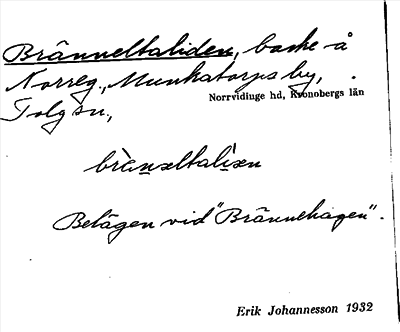 Bränneltaliden, backe å
Norreg., Munkatorps by,
Norrvidinge hd, Kronobergs län
Tolg sn,
brän̲eltali̲en
Belägen vid "Brännehagen".
Erik Johannesson 1932